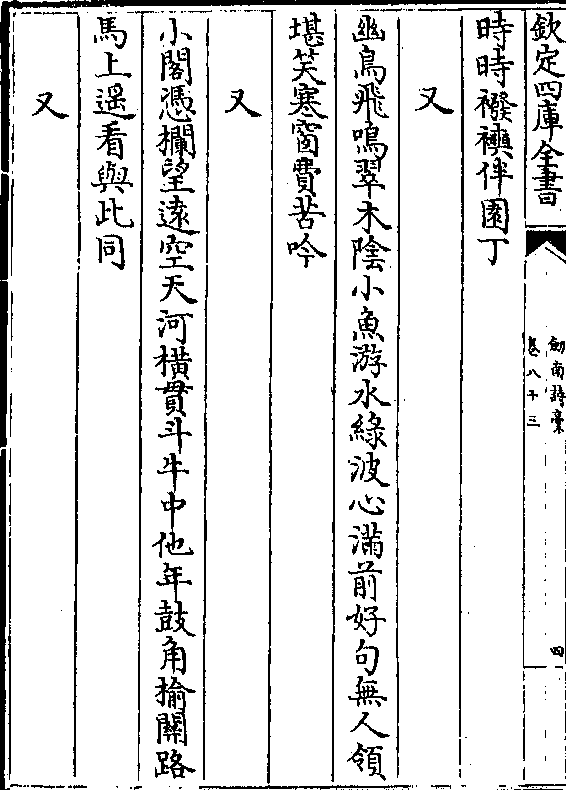 欽定四庫全書
劒南詩稾
卷八十三
四
時時襏襫伴園丁
又
幽鳥飛鳴翠木陰小魚游水綠波心滿前好句無人領
堪笑寒窗費苦吟
又
小閣憑欄望遠空天河橫貫斗牛中他年鼓角揄關路
馬上遥看與此同
又